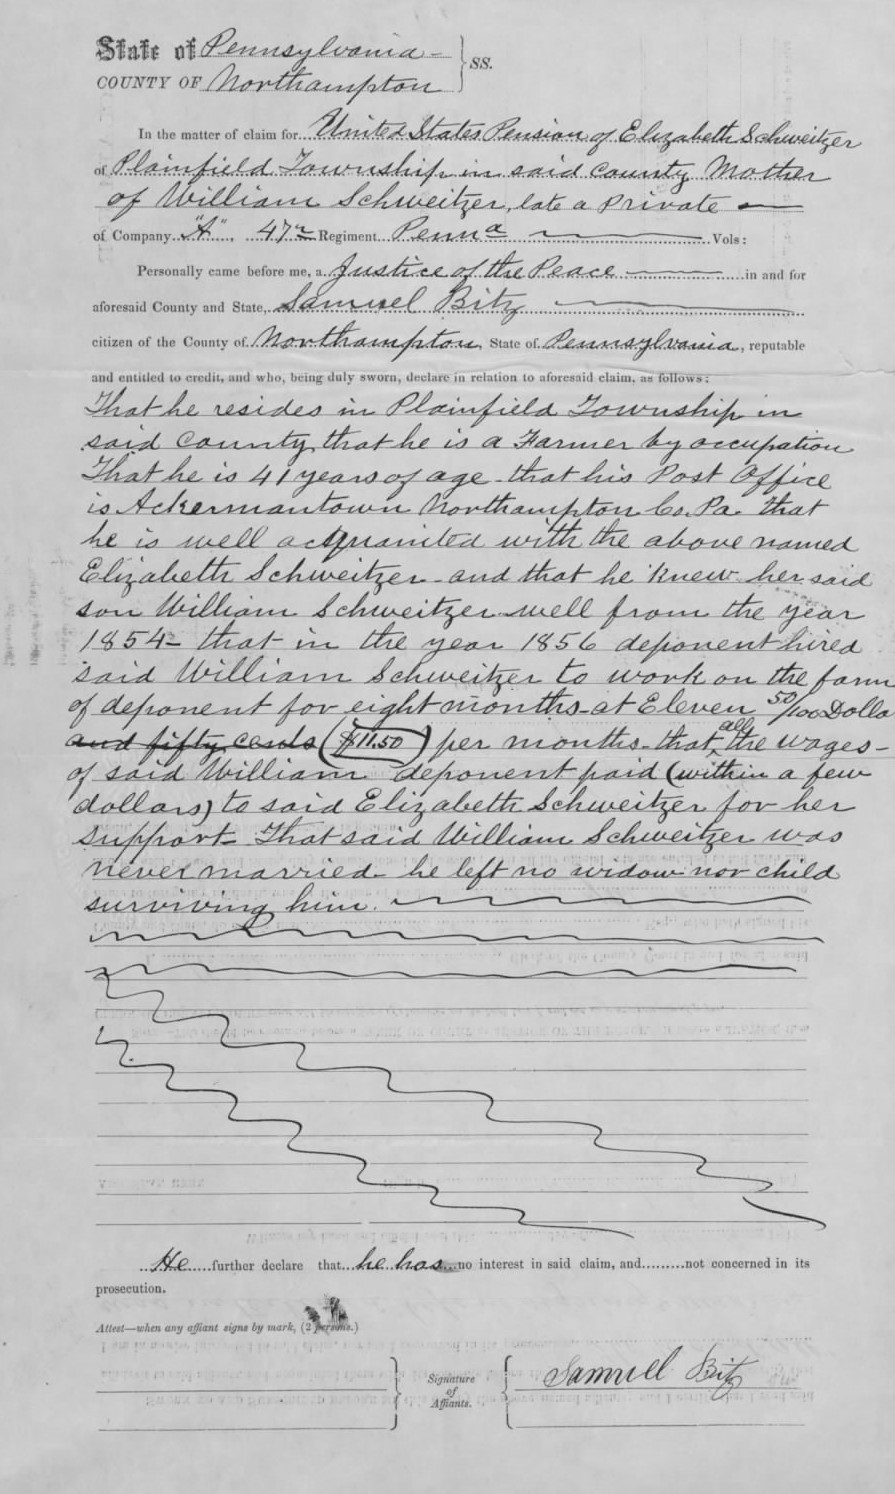 State of Pennsylvania
COUNTY OF Northampton } SS.
In the matter of claim for United States Pension of Elizabeth Schweitzer
of Plainfield Township in said County Mother
of William Schweitzer, late a Private
of Company "A", 47th Regiment Penna Vols:
Personally came before me, a Justice of the Peace in and for
aforesaid County and State, Samuel Bitz
citizen of the County of Northampton, State of Pennsylvania, reputable
and entitled to credit, and who, being duly sworn, declare in relation to aforesaid claim, as follows:
That he resides in Plainfield Township in
said County, that he is a Farmer by occupation
That he is 41 years of age - that his Post Office
is Ackermantown Northampton Co. Pa. that
he is well acquainted with the above named
Elizabeth Schweitzer - and that he knew her said
son William Schweitzer well from the year
1854 - that in the year 1856 deponent hired
said William Schweitzer to work on the farm
of deponent for eight months at Eleven 50/100 Dolla
and fifty cents ($11.50) per months - that all the wages -
of said William deponent paid (within a few
dollars) to said Elizabeth Schweitzer for her
support - That said William Schweitzer was
never married - he left no widow nor child
surviving him.
He further declare that he has no interest in said claim, and.........not concerned in its
prosecution.
Attest—when any affiant signs by mark, (2 persons.)
Signature
of
Affiants.
Samuel Bitz